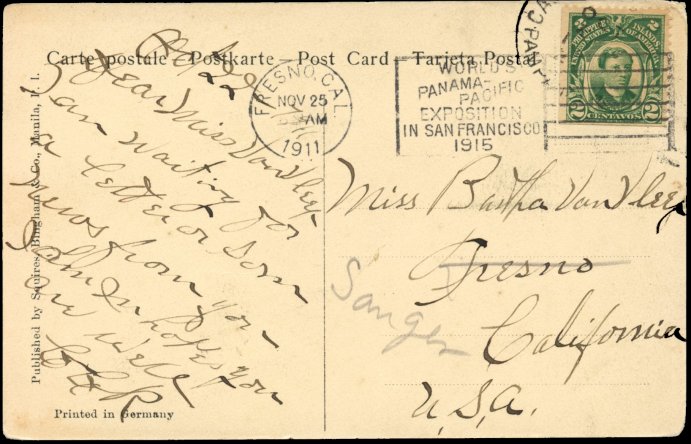 Carte postale - Postkarte - Post Card - Tarjeta Postal
Published by Squires, Bingham & Co., Manila, P. I.
Printed in Germany
FRESNO, CAL.
NOV 25
AM
1911
WORLD'S
PANAMA-PACIFIC
EXPOSITION
IN SAN FRANCISCO
1915
PHILIPPINE ISLANDS
UNITED STATES OF AMERICA
2 CENTAVOS 2
22
Dear Miss Van Vleet
I am waiting for
a letter or some
news from you
In hopes you
are well
Miss Bertha Van Vleet
Fresno
Sanger
California
U.S.A.